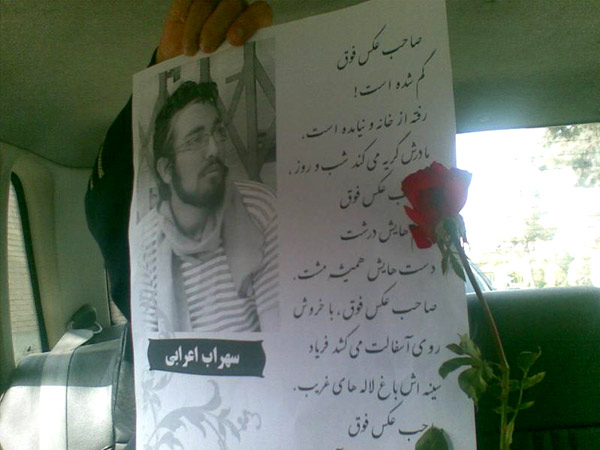 صاحب عکس فوق
گم شده است!
رفته از خانه و نیامده است.
مادرش گریه می کند شب و روز.
عکس فوق
هایش درشت
دست هایش همیشه مشت.
صاحب عکس فوق، با خروش
روی آسفالت می کشد فریاد
سینه اش باغ لاله های غریب.
صاحب عکس فوق
سهراب اعرابی